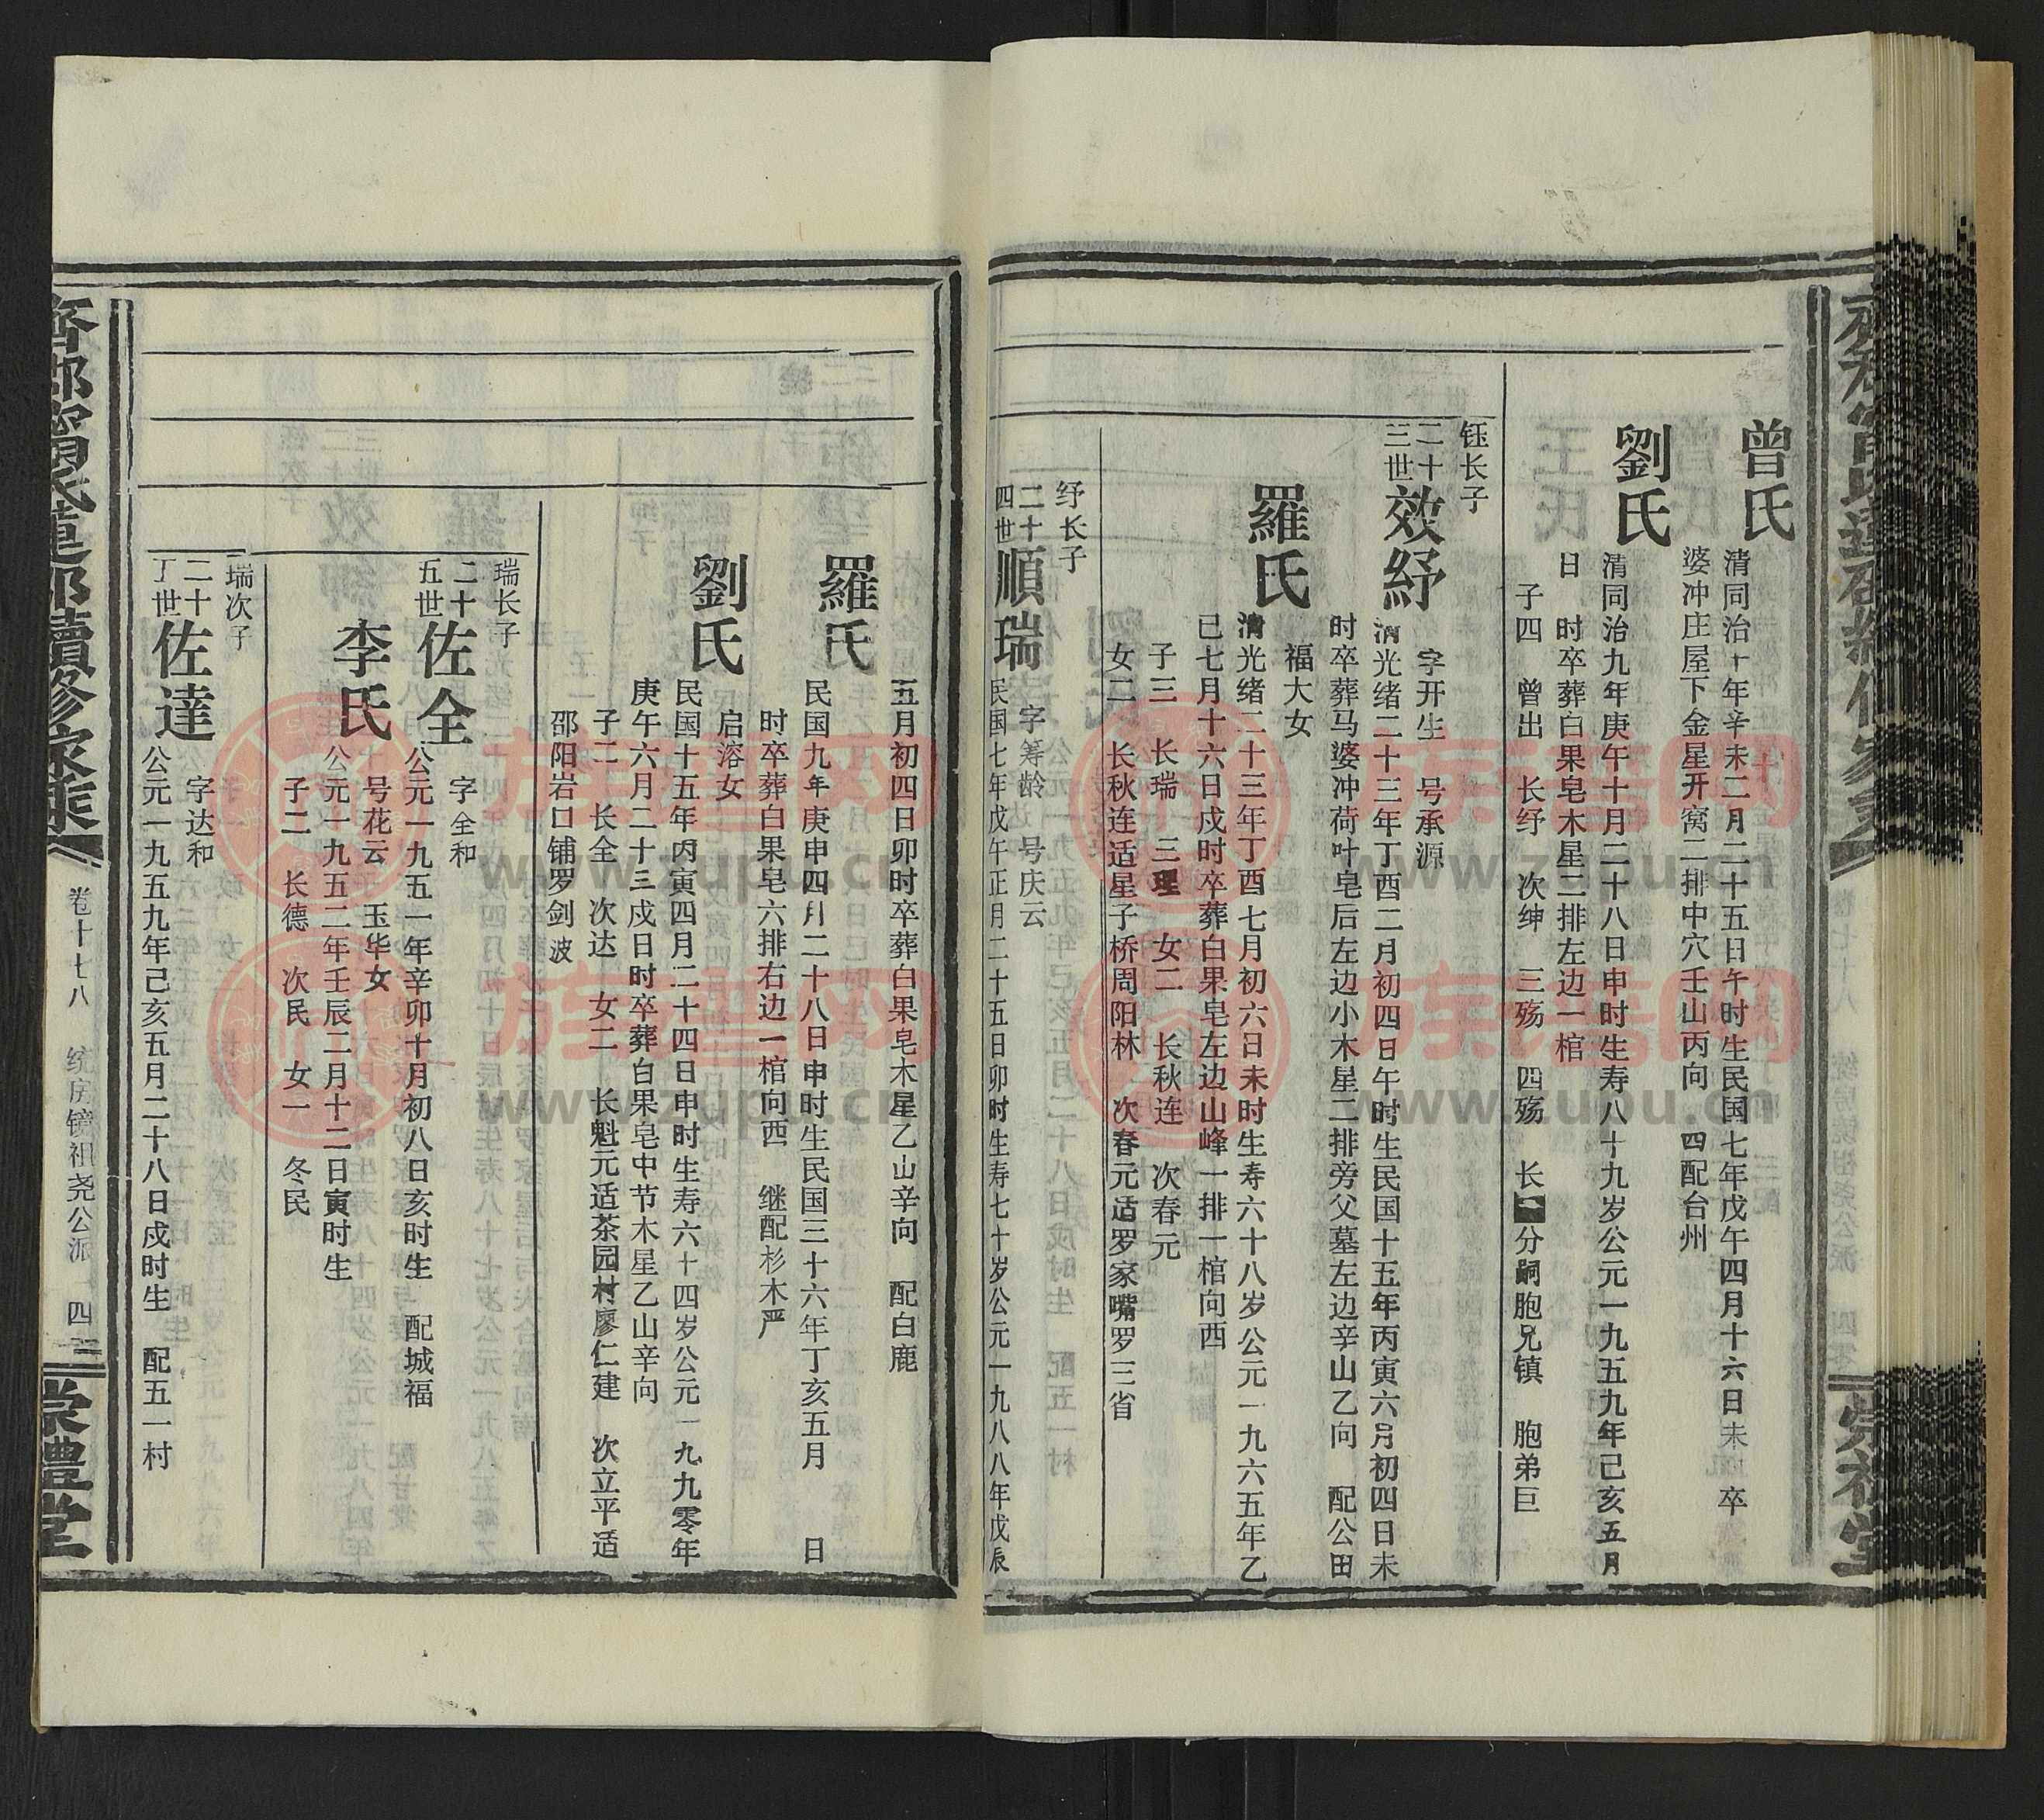 曾氏
清同治十年辛未二月二十五日午时生民国七年戊午四月十六日未时卒
婆冲庄屋下金星开窝二排中穴壬山丙向 四配台州
劉氏
清同治九年庚午十月二十八日申时生寿八十九岁公元一九五九年己亥五月
日 时卒葬白果皂木星二排左边一棺
子四 曾出 长纾 次绅 三殇 四殇 长 分嗣胞兄镇 胞弟巨
钰长子
二十三世
效紓
字开生 号承源
清光绪二十三年丁酉二月初四日午时生民国十五年丙寅六月初四日未
时卒葬马婆冲荷叶皂后左边小木星二排旁父墓左边辛山乙向 配公田
福大女
羅氏
清光绪二十三年丁酉七月初六日未时生寿六十八岁公元一九六五年乙
巳七月十六日戌时卒葬白果皂左边山峰一排一棺向西
子三 长瑞 三理 女二 长秋连 次春元
女二 长秋连适星子桥周阳林 次春元适罗家嘴罗三省
纾长子
二十四世
順瑞
字筹龄 号庆云
民国七年戊午正月二十五日卯时生寿七十岁公元一九八八年戊辰
五月初四日卯时卒葬白果皂木星乙山辛向 配白鹿
羅氏
民国九年庚申四月二十八日申时生民国三十六年丁亥五月 日
时卒葬白果皂六排右边一棺向西 继配杉木严
启溶女
劉氏
民国十五年丙寅四月二十四日申时生寿六十四岁公元一九九零年
庚午六月二十三戌日时卒葬白果皂中节木星乙山辛向
子二 长全 次达 女二 长魁元适茶园村廖仁建 次立平适
邵阳岩口铺罗剑波
瑞长子
二十五世
佐全
字全和
公元一九五一年辛卯十月初八日亥时生 配城福
号花云 玉华女
李氏
公元一九五二年壬辰二月十二日寅时生
子二 长德 次民 女一 冬民
瑞次子
二十 世
佐達
字达和
公元一九五九年己亥五月二十八日戌时生 配五一村
齊邵甯氏道邵續修家乘
卷十七八 统房镜祖尧公派 四一
崇禮堂
族譜网
www.zupu.cn
族譜网
www.zupu.cn
族譜网
www.zupu.cn
族譜网
www.zupu.cn